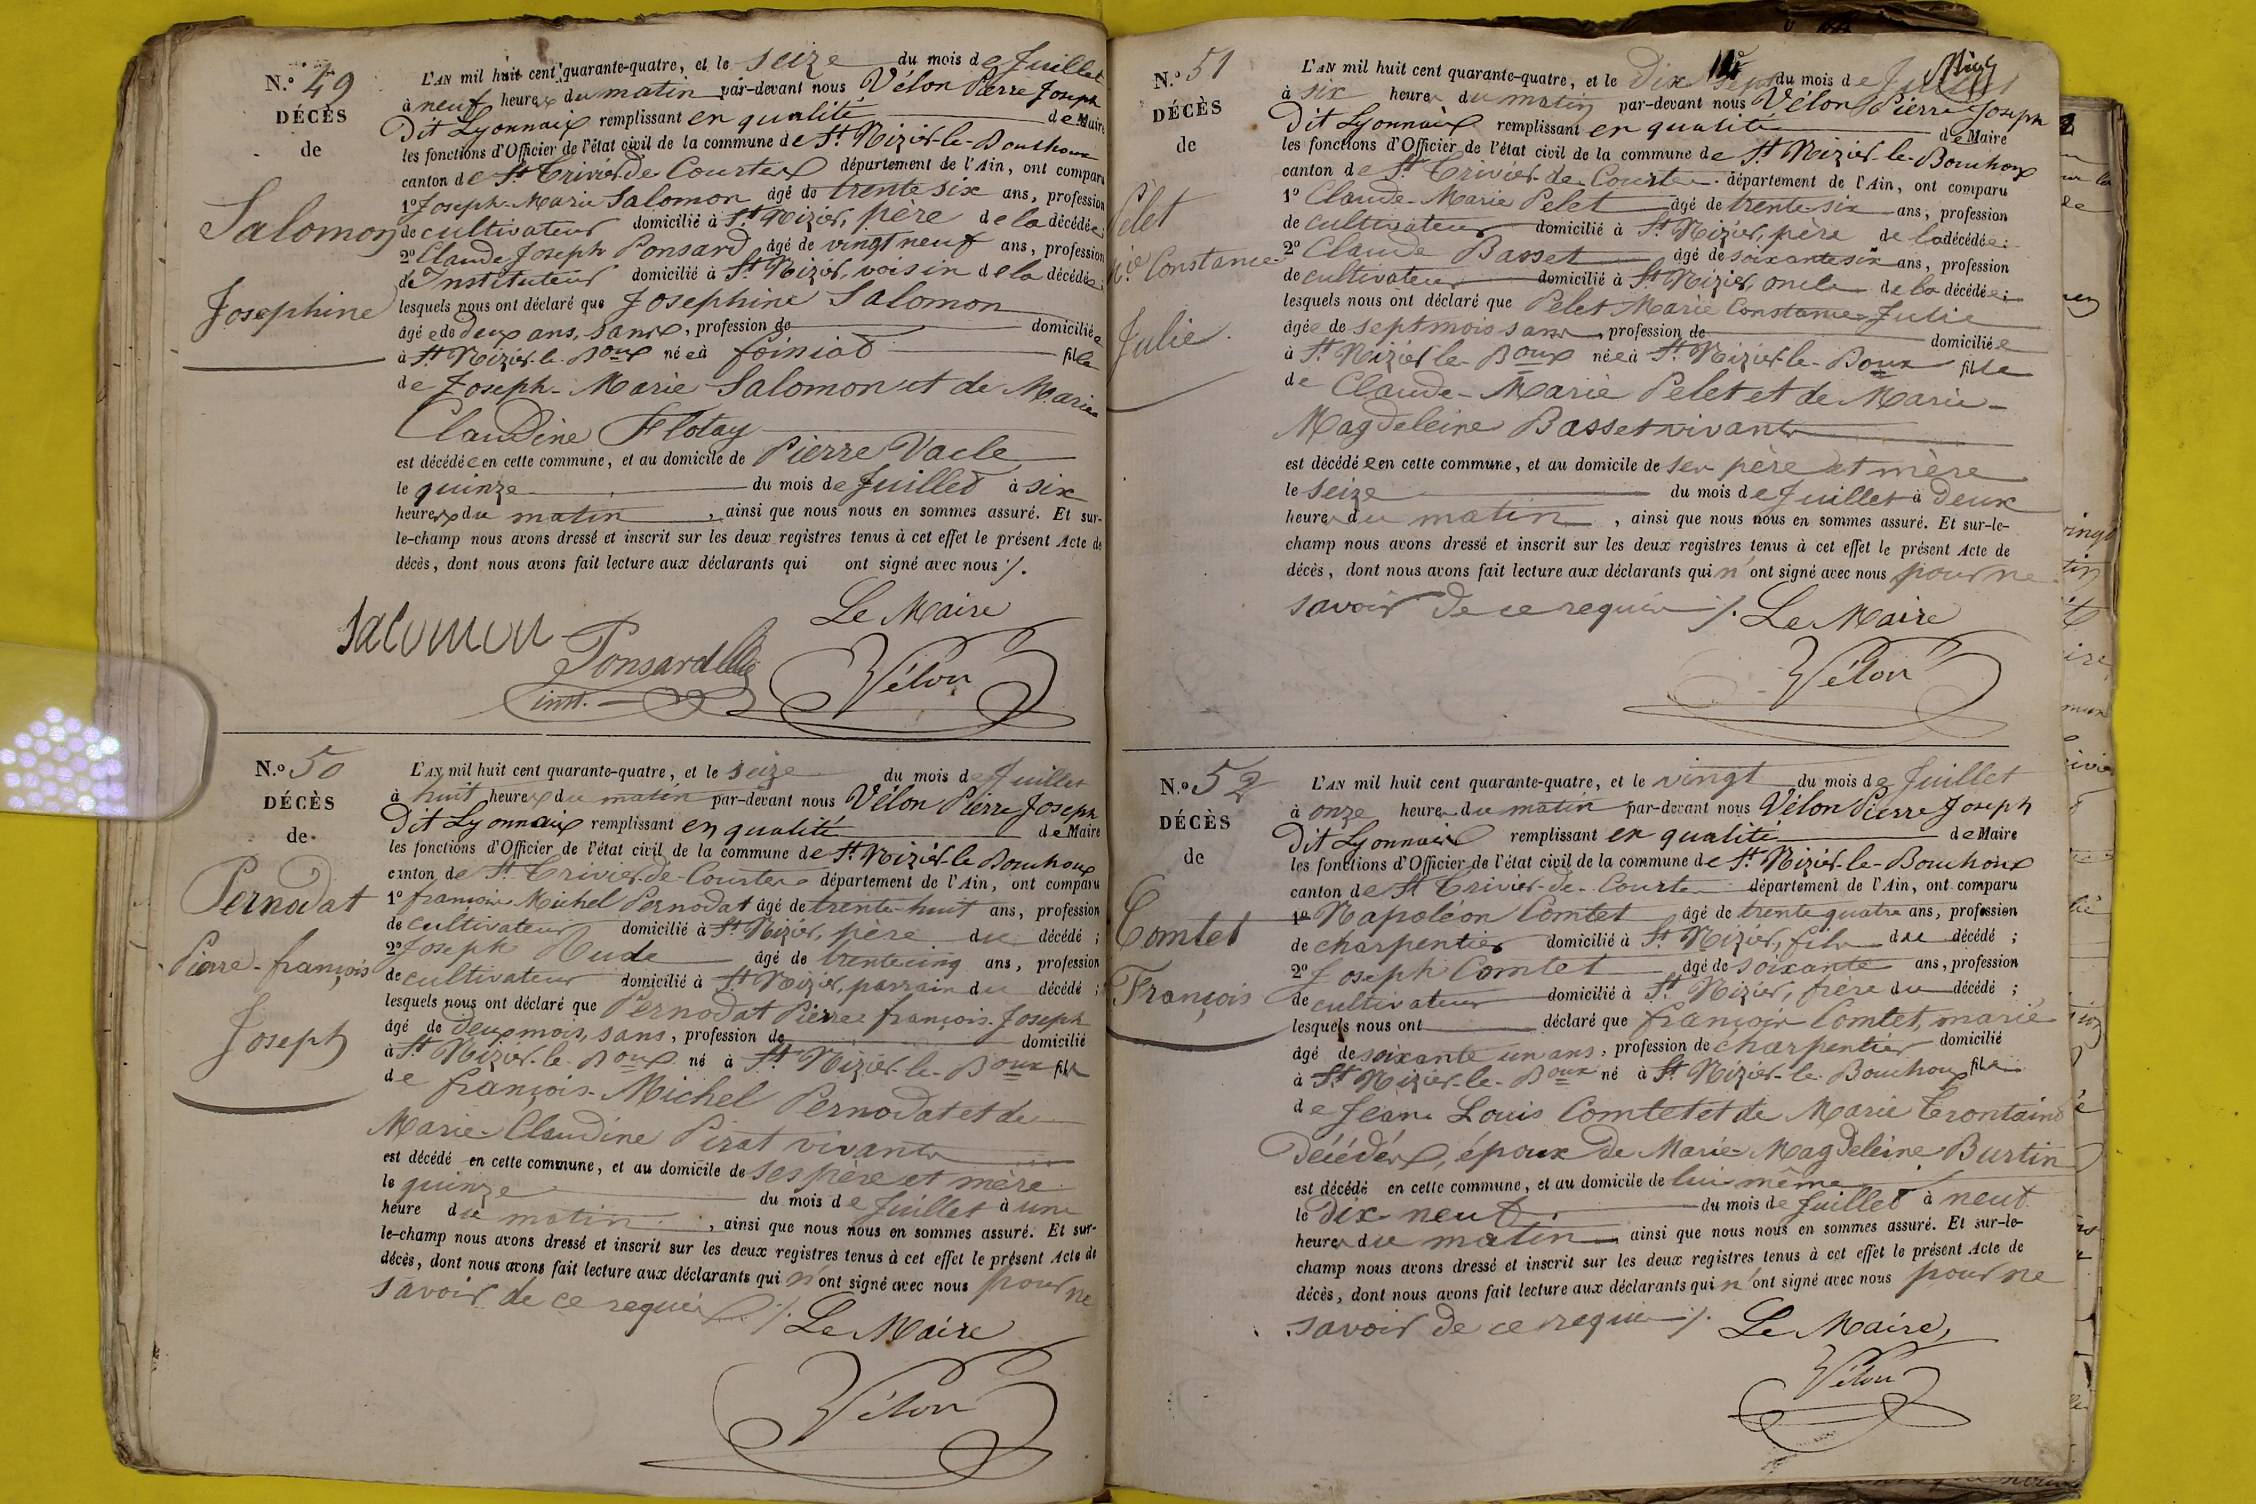 N.º 49
DÉCÈS
de
Salomon
Josephine
L'AN mil huit cent quarante-quatre, et le seize du mois de Juillet
à neuf heures du matin par-devant nous Vélon Pierre Joseph
Dit Lyonnais remplissant en qualité de Maire
les fonctions d'Officier de l'état civil de la commune de St. Nizier-le-Bouchoux
canton de St. Trivier-de Courtes département de l'Ain, ont comparu
1º Joseph-Marie Salomon âgé de trente six ans, profession
de cultivateur domicilié à St. Nizier, père de la décédée;
2º Claude Joseph Ponsard âgé de vingt neuf ans, profession
de Instituteur domicilié à St. Nizier, voisin de la décédée;
lesquels nous ont déclaré que Josephine Salomon
âgée de deux ans, sans, profession de domiciliée
à St. Nizier-le-Boux née à foiniat fille
de Joseph-Marie Salomon et de Marie
Claudine Flotay
est décédée en cette commune, et au domicile de Pierre Vacle
le quinze du mois de Juillet à six
heures du matin, ainsi que nous nous en sommes assuré. Et sur-
le-champ nous avons dressé et inscrit sur les deux registres tenus à cet effet le présent Acte de
décès, dont nous avons fait lecture aux déclarants qui ont signé avec nous ./.
Le Maire
Salomon
Ponsard
inst.
Vélon
N.º 50
DÉCÈS
de
Pernodat
Pierre-françois
Joseph
L'AN mil huit cent quarante-quatre, et le seize du mois de Juillet
à huit heures du matin par-devant nous Vélon Pierre Joseph
Dit Lyonnais remplissant en qualité de Maire
les fonctions d'Officier de l'état civil de la commune de St. Nizier-le Bouchoux
canton de St. Trivier-de-Courtes département de l'Ain, ont comparu
1º françois Michel Pernodat âgé de trente-huit ans, profession
de cultivateur domicilié à St. Nizier, père du décédé;
2º Joseph Rude âgé de trente cinq ans, profession
de cultivateur domicilié à St. Nizier, parrain du décédé;
lesquels nous ont déclaré que Pernodat Pierre françois-Joseph
âgé de deux mois, sans, profession de domicilié
à St. Nizier-le-Boux né à St. Nizier-le-Boux fils
de françois-Michel Pernodat et de
Marie-Claudine Pirat vivants
est décédé en cette commune, et au domicile de ses père et mère
le quinze du mois de Juillet à une
heure du matin, ainsi que nous nous en sommes assuré. Et sur-
le-champ nous avons dressé et inscrit sur les deux registres tenus à cet effet le présent Acte de
décès, dont nous avons fait lecture aux déclarants qui n'ont signé avec nous pour ne
savoir de ce requis ./. Le Maire
Vélon
N.º 51
DÉCÈS
de
Pelet
Constance
Julie
L'AN mil huit cent quarante-quatre, et le dix sept du mois de Juillet
à six heures du matin par-devant nous Vélon Pierre Joseph
Dit Lyonnais remplissant en qualité de Maire
les fonctions d'Officier de l'état civil de la commune de St. Nizier-le-Bouchoux
canton de St. Trivier-de-Courtes département de l'Ain, ont comparu
1º Claude-Marie Pelet âgé de trente-six ans, profession
de cultivateur domicilié à St. Nizier, père de la décédée;
2º Claude Basset âgé de soixante six ans, profession
de cultivateur domicilié à St. Nizier, oncle de la décédée;
lesquels nous ont déclaré que Pelet Marie Constance-Julie
âgée de sept mois sans, profession de domiciliée
à St. Nizier-le-Boux née à St. Nizier-le-Boux fille
de Claude-Marie Pelet et de Marie-
Magdeleine Basset vivants
est décédée en cette commune, et au domicile de ses père et mère
le seize du mois de Juillet à deux
heures du matin, ainsi que nous nous en sommes assuré. Et sur-le-
champ nous avons dressé et inscrit sur les deux registres tenus à cet effet le présent Acte de
décès, dont nous avons fait lecture aux déclarants qui n'ont signé avec nous pour ne
savoir de ce requis ./. Le Maire
Vélon
N.º 52
DÉCÈS
de
Comtet
François
L'AN mil huit cent quarante-quatre, et le vingt du mois de Juillet
à onze heures du matin par-devant nous Vélon Pierre Joseph
Dit Lyonnais remplissant en qualité de Maire
les fonctions d'Officier de l'état civil de la commune de St. Nizier-le-Bouchoux
canton de St. Trivier-de-Courtes département de l'Ain, ont comparu
1º Napoléon Comtet âgé de trente quatre ans, profession
de charpentier domicilié à St. Nizier, fils du décédé;
2º Joseph Comtet âgé de soixante ans, profession
de cultivateur domicilié à St. Nizier, frère du décédé;
lesquels nous ont déclaré que françois Comtet, marié
âgé de soixante un ans, profession de charpentier domicilié
à St. Nizier-le-Boux né à St. Nizier-le-Bouchoux fils
de Jean Louis Comtet et de Marie
Décédés, époux de Marie-Magdeleine Burtin
est décédé en cette commune, et au domicile de lui même
le dix-neuf du mois de Juillet à neuf
heures du matin ainsi que nous nous en sommes assuré. Et sur-le-
champ nous avons dressé et inscrit sur les deux registres tenus à cet effet le présent Acte de
décès, dont nous avons fait lecture aux déclarants qui n'ont signé avec nous pour ne
savoir de ce requis ./. Le Maire,
Vélon